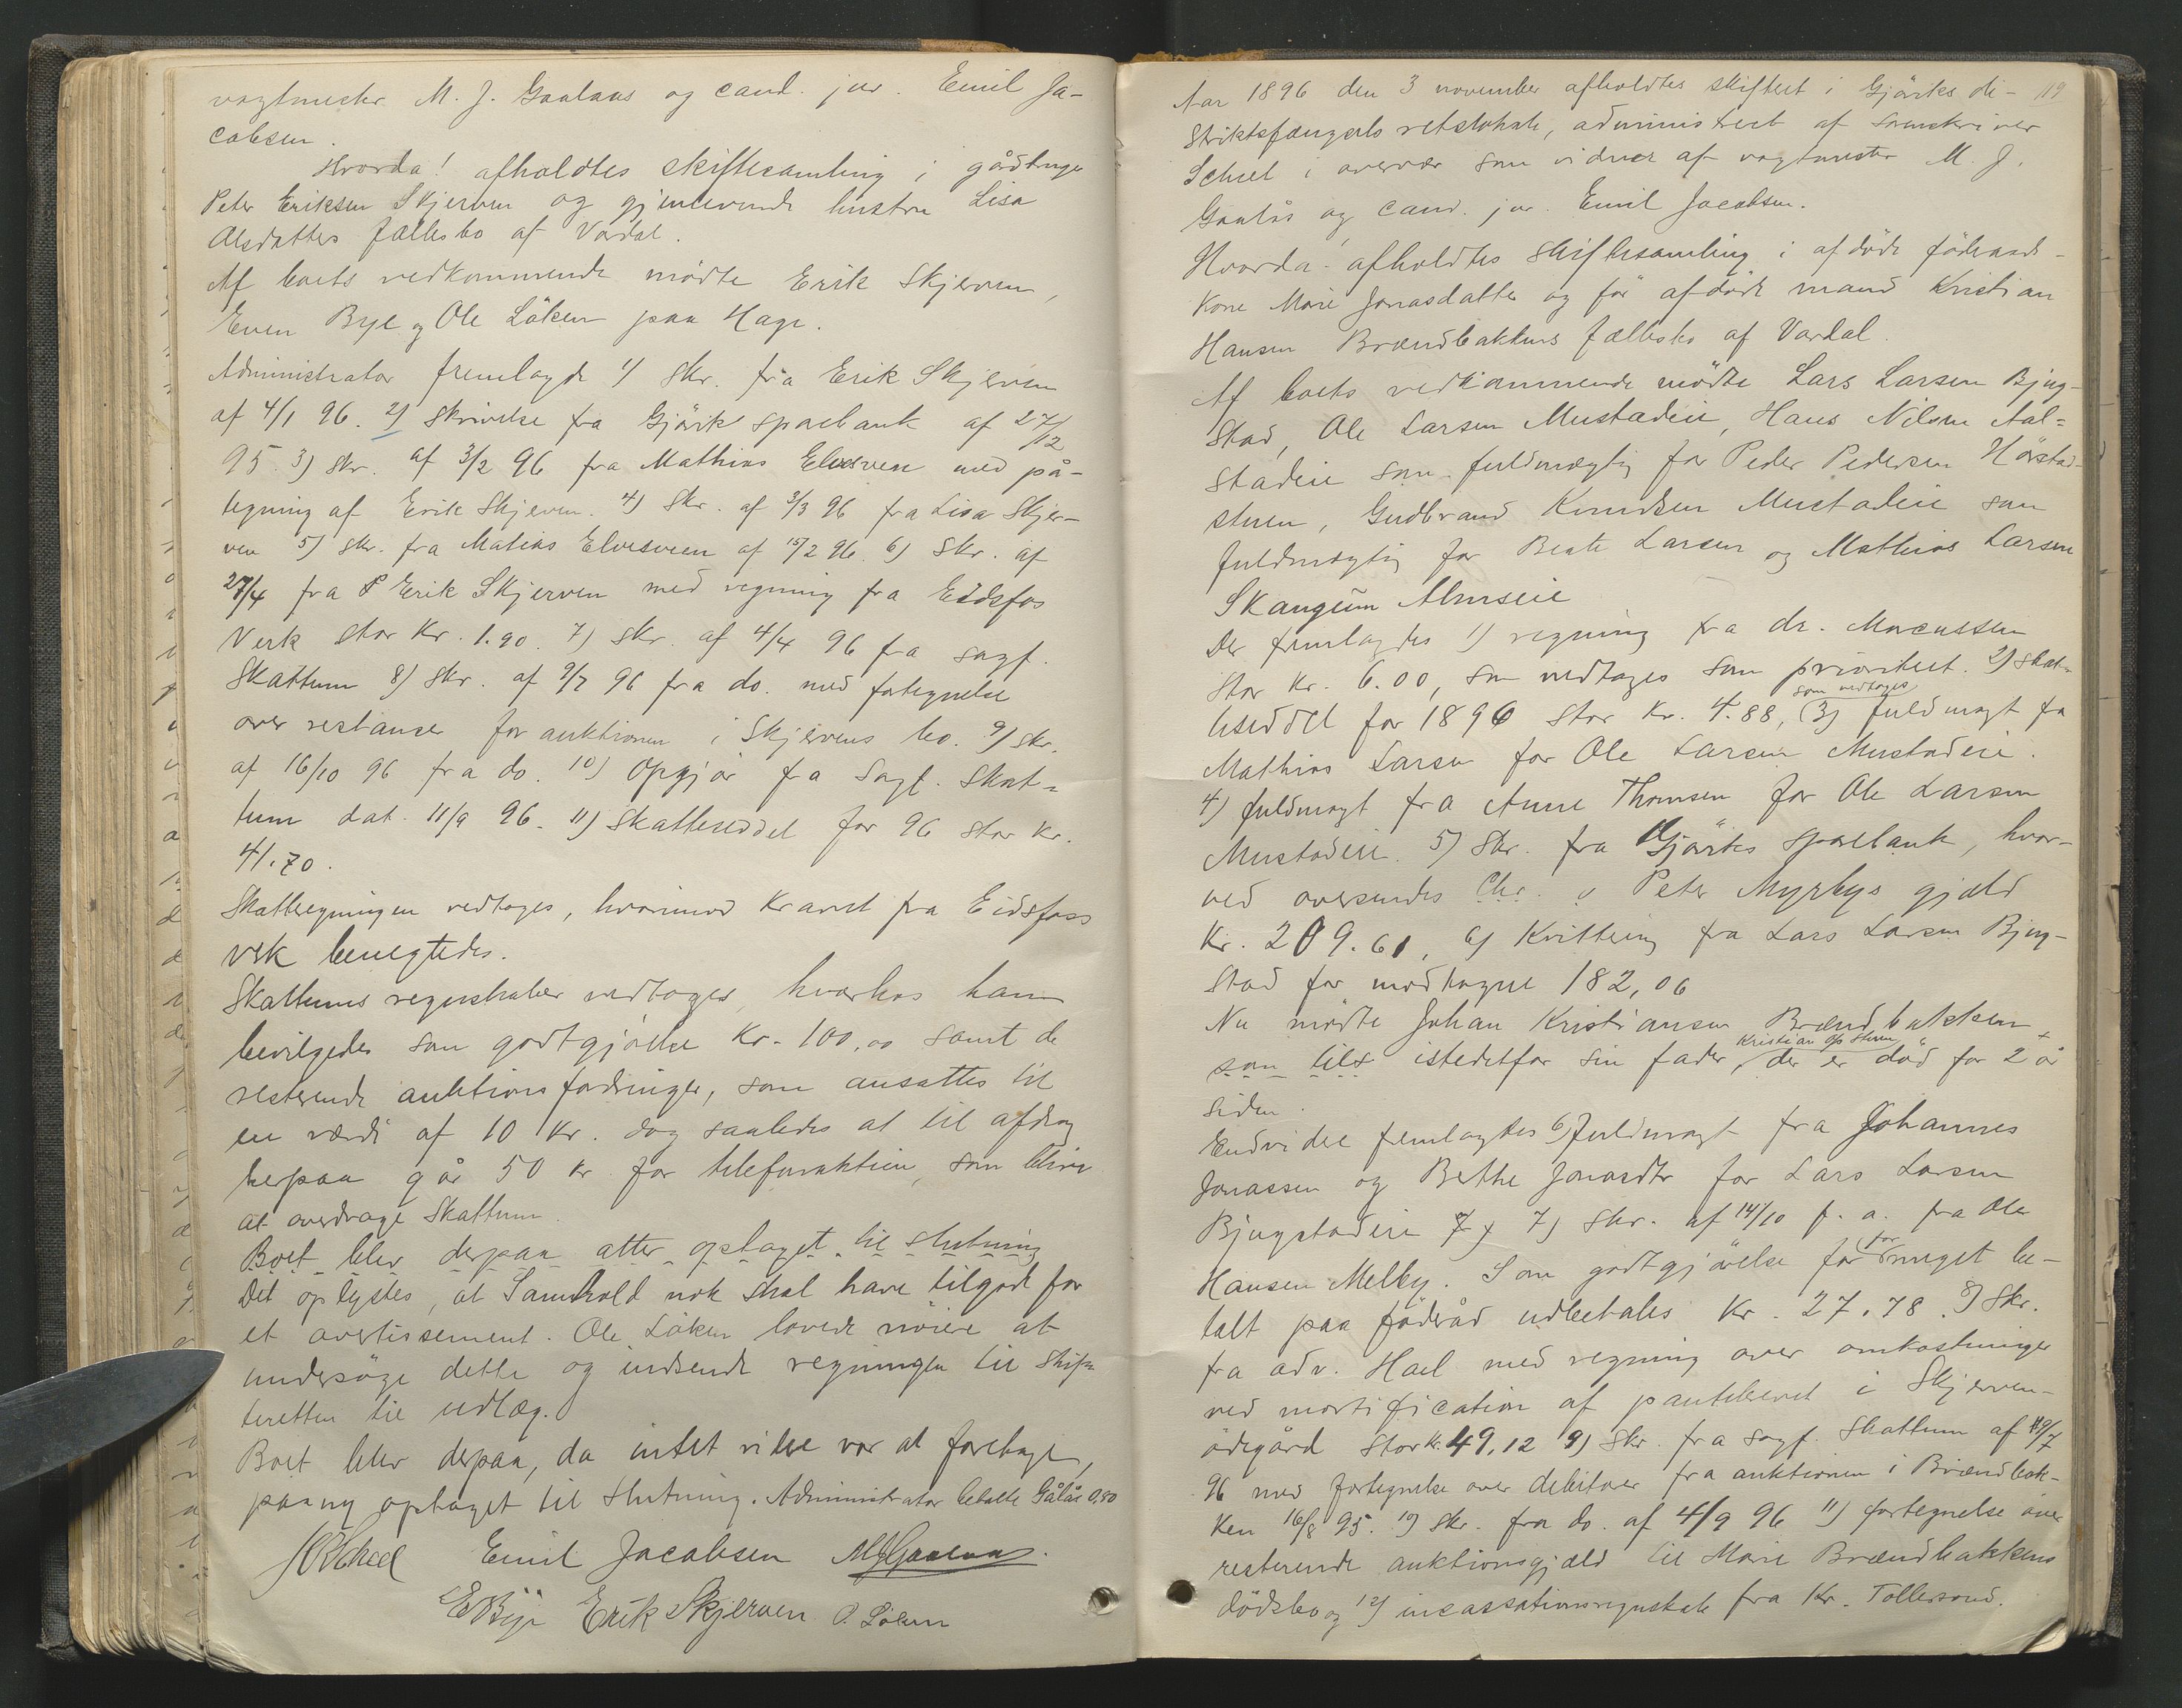 vagtmester M. J. Gaalaas og cand. jur. Emil Ja-
cobsen.
Hvorda! afholdtes skiftesamling i gårdbruger
Peter Eriksen Skjerven og gjenlevende hustru Lisa
Olsdatters fællesbo af Vardal.
Af boets vedkommende mødte Erik Skjerven,
Even Bye og Ole Löken paa Hage.
Administrator fremlagde 1) skr. fra Erik Skjerven
af 4/1 96. 2) skrivelse fra Gjövik sparebank af 27/12
95. 3) skr. af 3/2 96 fra Mathias Elvesveen med på-
tegning af Erik Skjerven. 4) Skr. af 3/3 96 fra Lisa Skjer-
ven 5) skr. fra Matias Elvesveen af 15/2 96. 6) Skr. af
27/4 fra Erik Skjerven med regning fra Eidsfos
Verk stor Kr. 1.90. 7) skr. af 4/4 96 fra sagf.
Skattum 8) skr. af 9/7 96 fra do. med fortegnelse
over restanser for auktionen i Skjervens bo. 9) skr.
af 16/10 96 fra do. 10) Opgjör fra Sagf. Skat-
tum dat. 11/9 96. 11) Skatteseddel for 96 stor kr.
41.70.
Skatteregningen vedtoges, hvorimod kravet fra Eidsfoss
verk benegtedes.
Skattums regnskaber vedtoges, hvorhos ham
bevilgedes som godtgjörelse Kr. 100,00 samt de
resterende auktionsfordringer, som ansattes til
en værdi af 10 Kr. dog saaledes at til afdrag
herpaa går 50 kr for telefonaktien, som bliver
at overdrage Skattum.
Boet blev derpaa atter optaget til slutning
Det oplystes, at Samhold nok skal have tilgode for
et avertissement. Ole Löken lovede nöiere at
undersöge dette og indsende regningen til skif-
teretten til udlæg.
Boet blev derpaa, da intet videre var at foretage,
paany optaget til slutning. Administrator betalte Gålås 0,80
Emil Jacobsen MJGaalaas.
EBye Erik Skjerven O. Löken
119
Aar 1896 den 3 november afholdtes skifteret i Gjöviks di-
striktsfængsels retslokale, administreret af sorenskriver
Scheel i overvær som vidner af vagtmester M. J.
Gaalås og cand. jur. Emil Jacobsen.
Hvorda! afholdtes skiftesamling i afdöde föderaads-
kone Marie Jonasdatter og för afdöde mand Kristian
Hansen Brændbakkens fællesbo af Vardal.
Af boets vedkommende mödte Lars Larsen Bjug-
stad, Ole Larsen Mustadeie, Hans Nilsen Aal-
stadeie som fuldmægtig for Peder Pedersen Hörstad-
stuen, Gudbrand Knudsen Mustadeie som
fuldmægtig for Beate Larsen og Mathias Larsen
Skangum Almseie
Der fremlagdes 1) regning fra dr. Marcussen
stor kr. 6.00, som vedtoges som prioriteret. 2) skat-
teseddel for 1896 stor Kr. 4.88, som vedtoges 3) fuldmagt fra
Mathias Larsen for Ole Larsen Mustadeie.
4) fuldmagt fra Anne Thomsen for Ole Larsen
Mustadeie. 5) Skr. fra Gjöviks sparebank, hvor-
ved oversendes Chr. o Peter Myrbys gjæld
Kr. 209.61, 6) Kvittering fra Lars Larsen Bjug-
stad for modtagne 182,06
Nu mödte Johan Kristiansen Brændbakken
som istedetfor sin fader, Kristian der er död for 2 år
siden.
Endvidere fremlagdes 6) fuldmagt fra Johannes
Jonassen og Berthe Jonasdtr for Lars Larsen
Bjugstadeie 7) skr. af 14/10 f. a. fra Ole
Hansen Melby. Som godtgjörelse for for meget be-
talt paa föderåd udbetales Kr. 27.78. 8) Skr.
fra adv. Hael med regning over omkostninger
ved mortification af pantebrevet i Skjerven-
ödegård stor kr. 49,12 9) Skr. fra sagf. Skattum af 9/7
96 med fortegnelse over debitorer fra auktionen i Brændbak-
ken 16/8 95. 10) skr. fra do. af 4/9 96 11) fortegnelse over
resterende auktionsgjæld til Marie Brændbakkens
dödsbo og 12) incassationsregnskab fra Kr. Tollersrud.